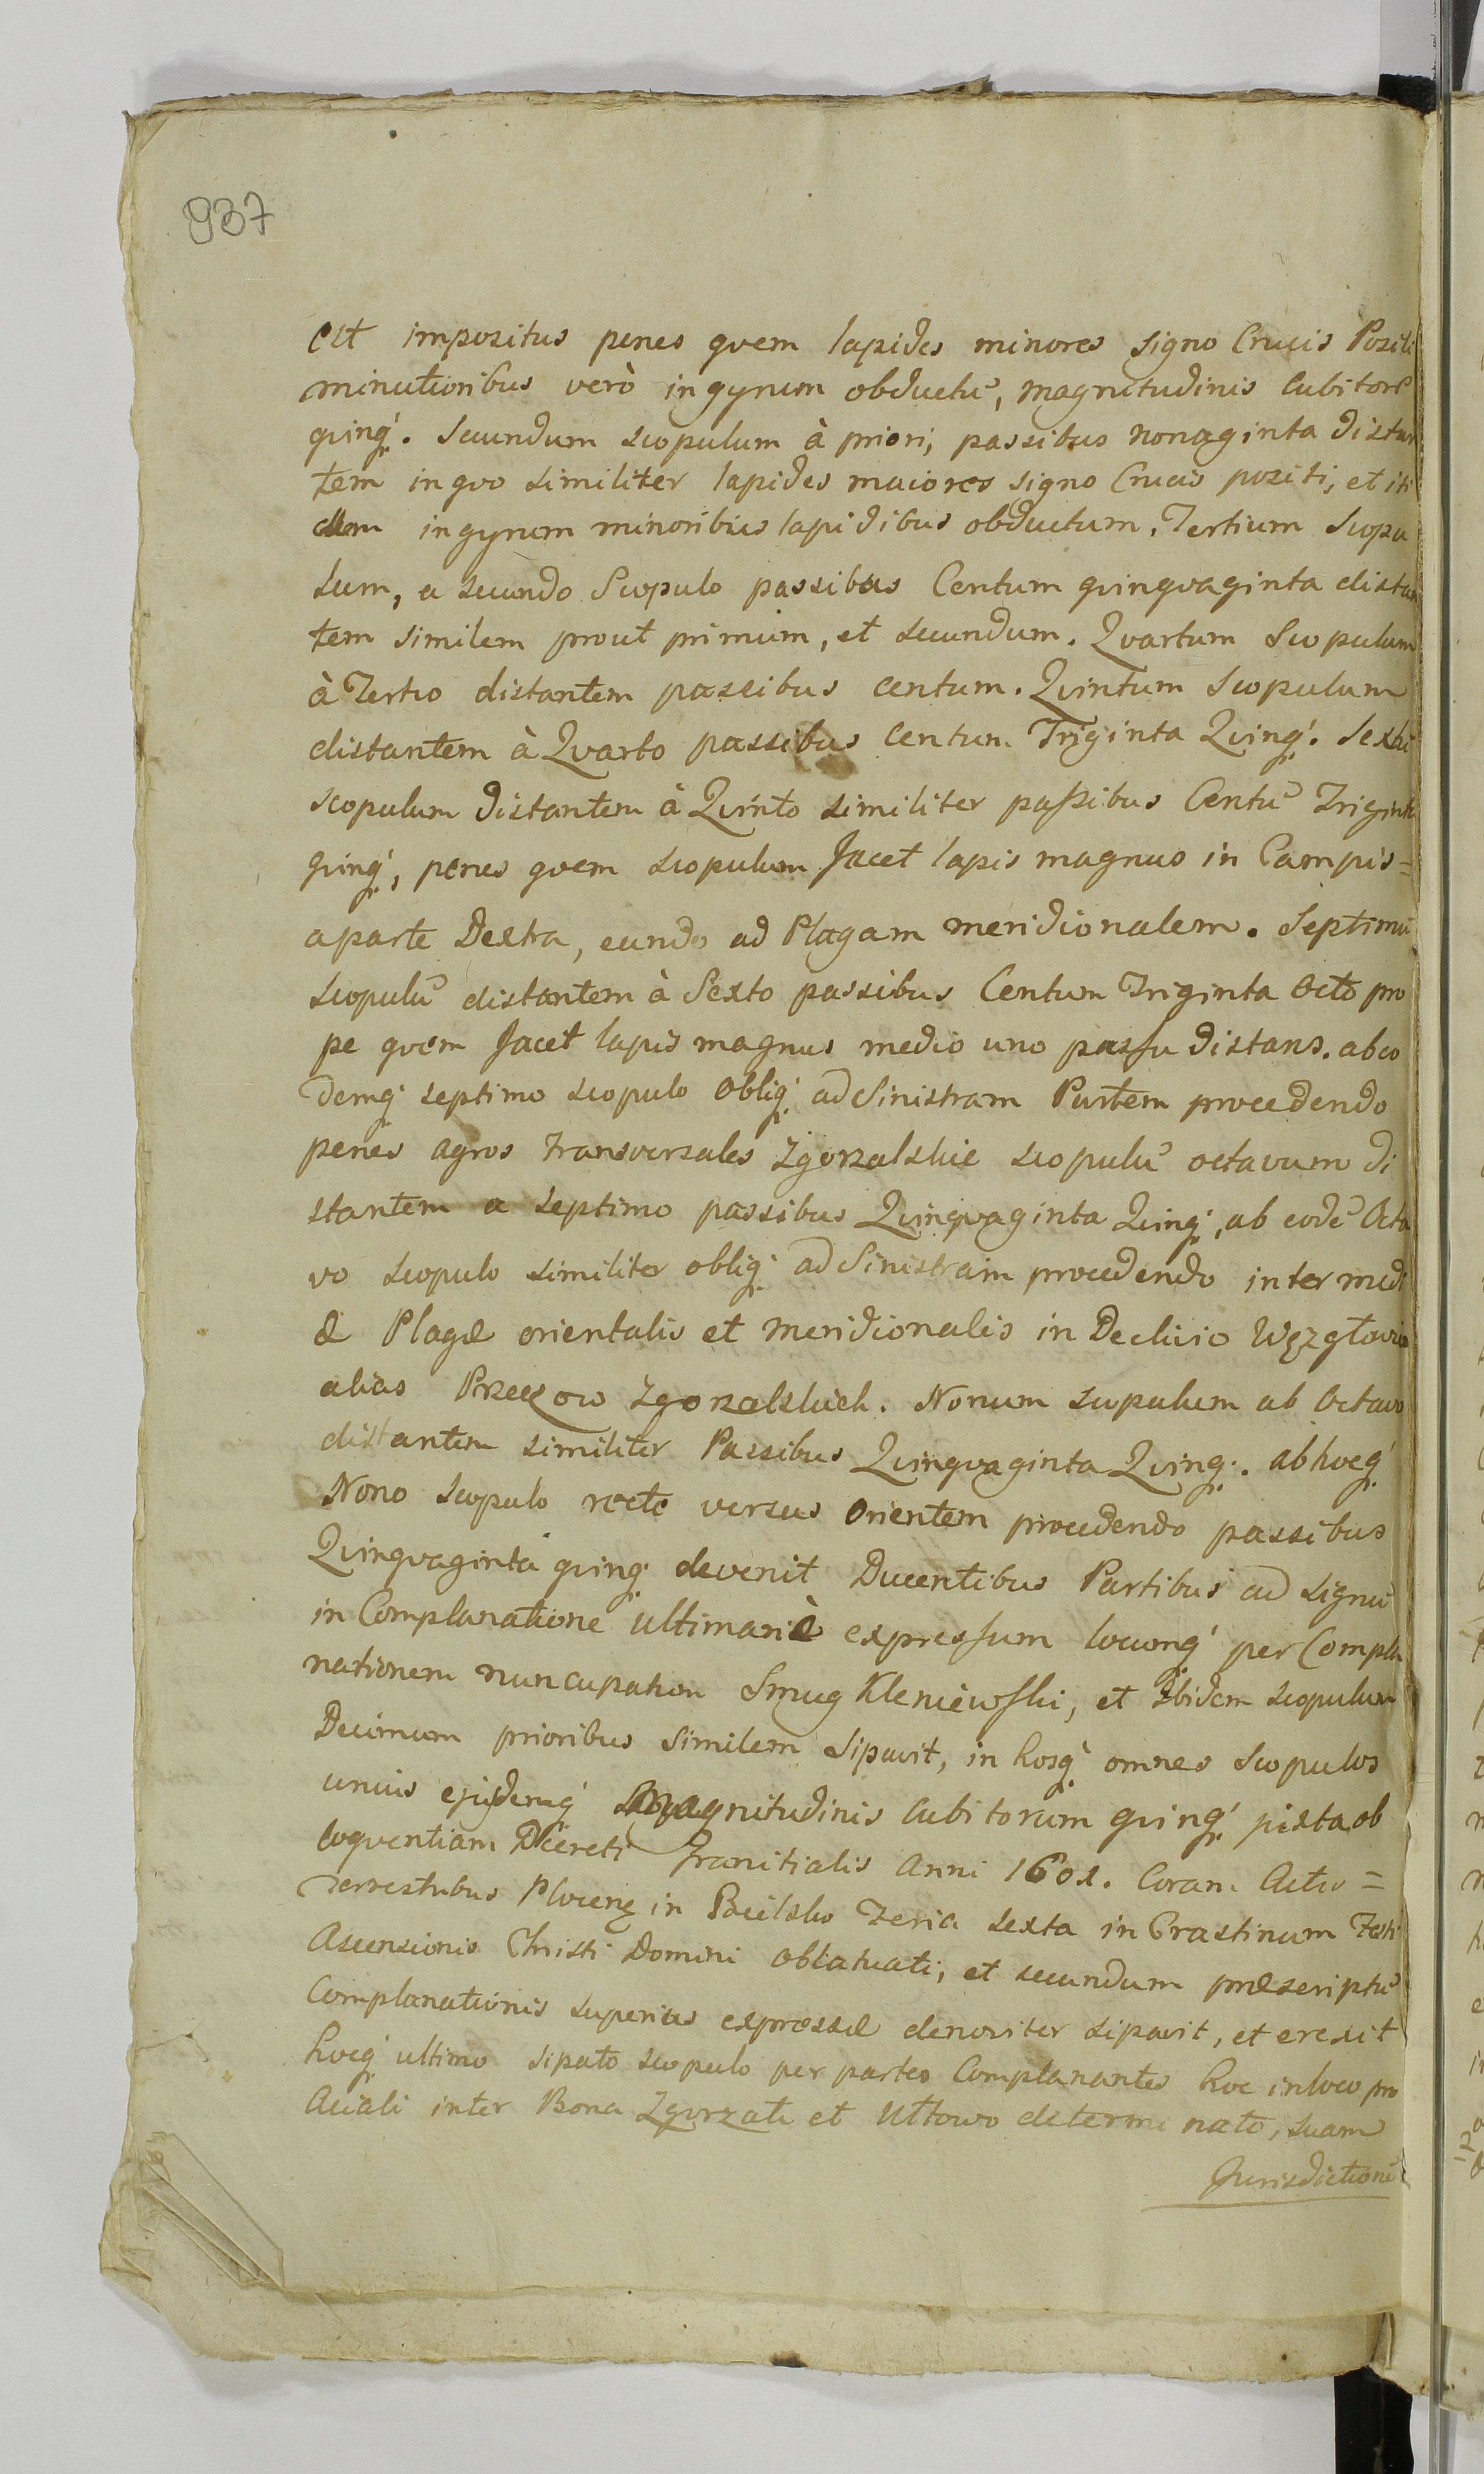 937
est impositus penes qvem lapides minores signo Crucis Positi
minutioribus verò in gyrum obductũ, magnitudinis Cubitorũ
qvinq́. Secundum scopulum à priori, passibus nonaginta distan
tem in qvo similiter lapides maiores signo Crucis positi, et iti
dem in gyrum minoribus lapidibus obductum. Tertium Scopu
lum, a secundo Scopulo passibus Centum qvinqvaginta distan
tem similem prout primum, et secundum. Qvartum Scopulum
à Tertio distantem passibus centum. Qvintum Scopulum
distantem à Qvarto passibus Centum Triginta Qvinq́. Sextũ
scopulum distantem à Qvinto similiter paßibus Centũ Triginta
qvinq́, penes qvem scopulum Jacet lapis magnus in Campis =
a parte Dextra, eundo ad Plagam meridionalem. Septimũ
scopulũ distantem à Sexto passibus Centum Triginta Octo pro
pe qvem Jacet lapis magnus medio uno passu distans. ab eo
demq́ septimo scopulo obliq́ ad Sinistram Partem procedendo
penes agros transversales Zgorzalskie scopulũ octavum di
stantem a septimo passibus Qvinqvaginta Qvinq́, ab eodẽ Octa
vo scopulo similiter obliq́ ad Sinistram procedendo intermedi
æ Plagæ orientalis et meridionalis in Declivio Węzgłovia
alias Przeczow Zgorzalskich. Nonum scopulum ab Octavo
distantem similiter Passibus Qvinqvaginta Qvinq́. ab hocq́
Nono scopulo recte versus Orientem procedendo passibus
Qvinqvaginta qvinq́ devenit Ducentibus Partibus ad signũ
in Complanatione ultimariè expressum locumq́ per Compla
nationem nuncupatum Smug Kleniewski, et Ibidem scopulum
Decimum prioribus similem sipavit, in hosq́ omnes scopulos
unius ejusdemq́ Magnitudinis Cubitorum qvinq́ juxta ob
loqventiam Decreti Granitialis Anni 1601. Coram Actis =
Terrestribus Plocen: in Bielsko Feria sexta in Crastinum Festi
Ascensionis Christi Domini oblatuati, et secundum præscriptũ
Complanationis superius expressæ denoviter sipavit, et erexit
hocq́ ultimo sipato scopulo per partes Complanantes hoc in loco pro
Aciali inter Bona Zgorzałe etUłtowo determinato, suam
Jurisdictionẽ